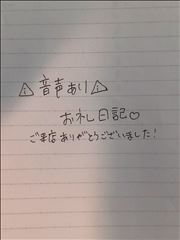 ⚠音声あり⚠
お礼日記♡
ご来店ありがとうございました！